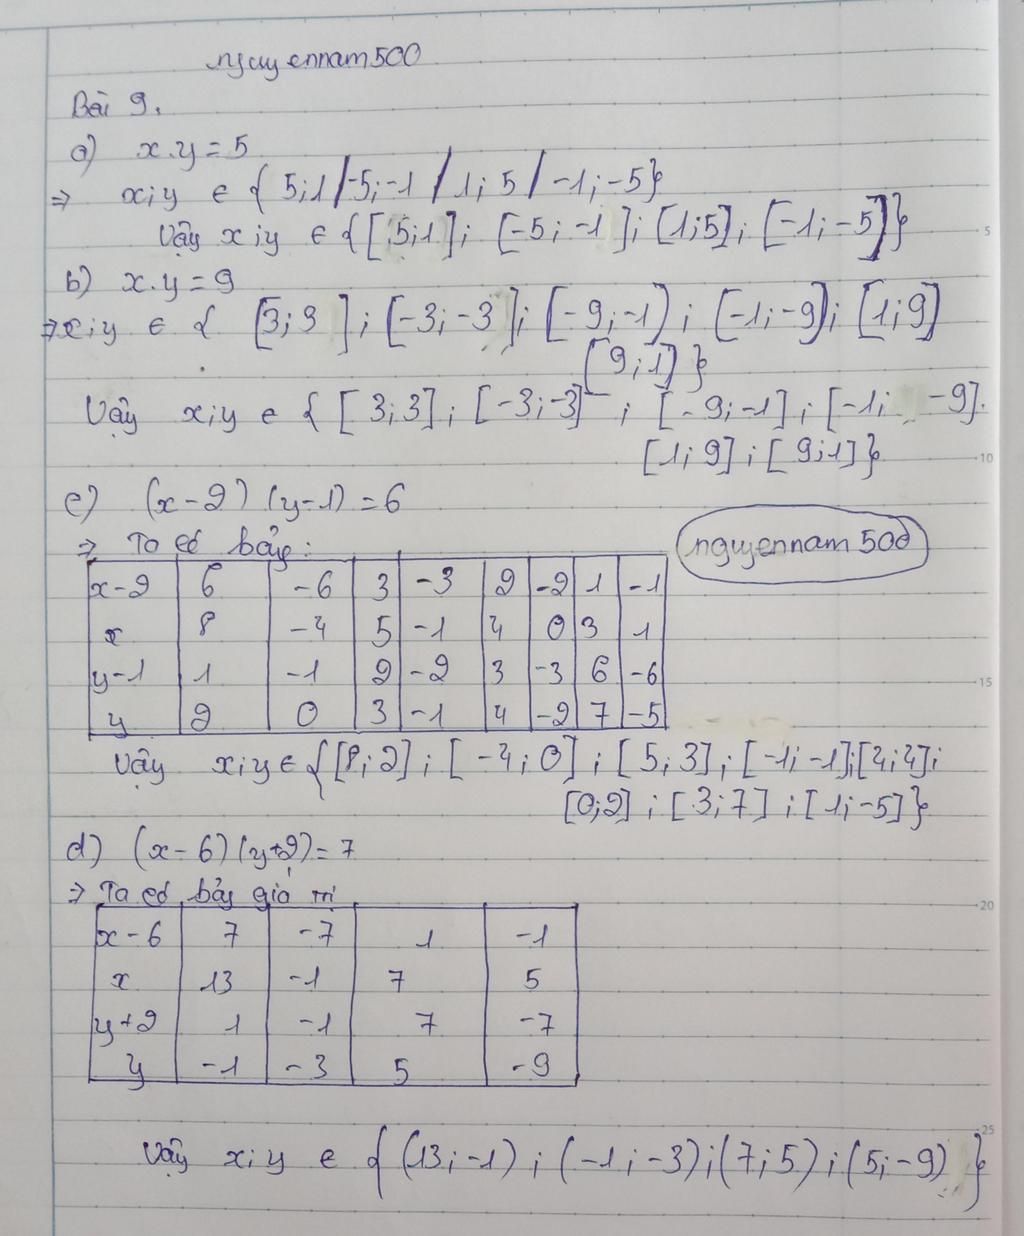 nguyennam500
Bài 9.
a) x.y = 5
=> x;y ∈ { 5;1 / -5;-1 / 1;5 / -1;-5}
Vậy x;y ∈ {[5;1]; [-5;-1]; [1;5]; [-1;-5]}
b) x.y = 9
=> x;y ∈ { [3;3]; [-3;-3]; [-9;-1); [-1;-9); [1;9]
[9;1]}
Vậy x;y ∈ { [3;3]; [-3;-3]; [-9;-1]; [-1; -9].
[1;9]; [9;1]}
c) (x-2) (y-1) = 6
=> Ta có bảng:
nguyennam500
x-2 6 -6 3 -3 2 -2 1 -1
x 8 -4 5 -1 4 0 3 1
y-1 1 -1 2 -2 3 -3 6 -6
y 2 0 3 -1 4 -2 7 -5
Vậy x;y ∈ {[8;2]; [-4;0]; [5;3]; [-1;-1];[4;4];
[0;2]; [3;7]; [1;-5]}
d) (x-6)(y+2) = 7
=> Ta có bảng giá trị
x-6 7 -7 1 -1
x 13 -1 7 5
y+2 1 -1 7 -7
y -1 -3 5 -9
Vậy x;y ∈ {(13;-1); (-1;-3);(7;5); (5;-9)}
5
10
15
20
25